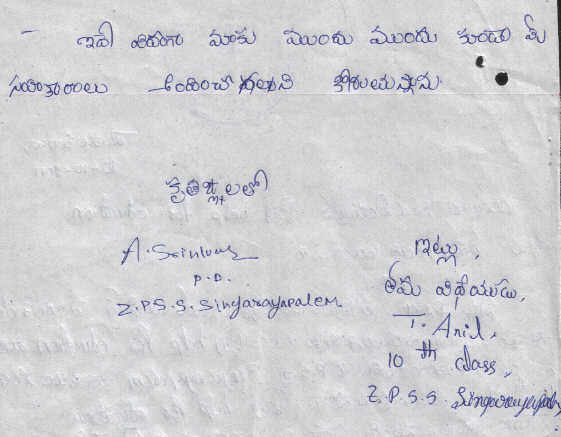 - ఇదే విధంగా మాకు ముందు ముందు కుడా మీ
సహకారాలు అందించగలరని కోరుచున్నాము.
కృతజ్ఞలతో
A. Srinivas
P.D.
Z.P.S.S. Singarayapalem.
ఇట్లు,
తమ విధేయుడు,
T. Anil,
10 th class,
Z.P.S.S. Singarayapalem